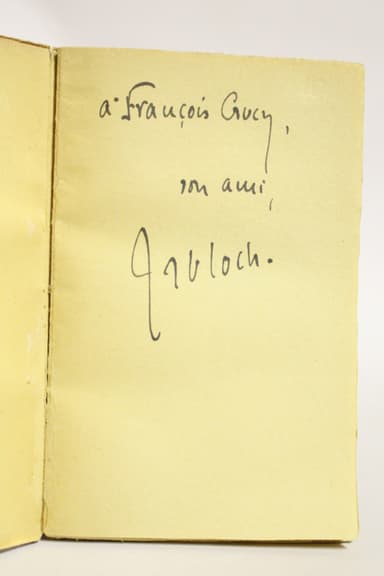 à François Crucy,
son ami,
Jrbloch.